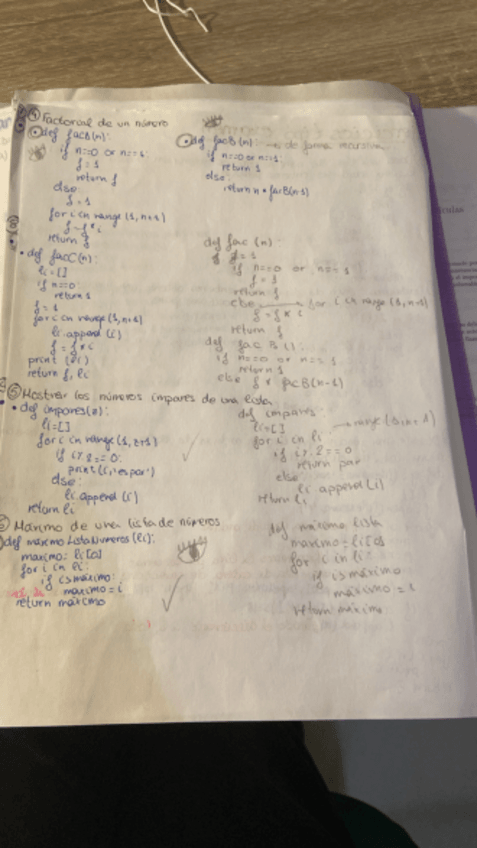 ④ Factorial de un número
def facB(n):
if n==0 or n==1:
f=1
return f
else:
f=1
for i in range (1,n+1)
f=f*i
return f
def facB(n): → de forma recursiva
if n==0 or n==1:
return 1
else:
return n * facB(n-1)
• def facC(n):
li=[]
if n==0:
return 1
f=1
for i in range (1,n+1)
li.append(i)
f=f*i
print (li)
return f, li
def fac (n)
f=1
if n==0 or n==1
f=1
return f
else → for i in range (1,n+1)
f=f*i
return f
def fac B():
if n==0 or n==1
return 1
else f * facB(n-1)
⑤ Mostrar los números impares de una lista.
• def impares(n):
li=[]
for i in range (1,n+1)
if i%2==0:
print(i,'es par')
else:
li.append(i)
return li
def impares:
li=[]
for i in li → range (1,n+1)
if i%2==0
return par
else
li append(i)
return li
Máximo de una lista de números
def máximoListaNúmeros (li):
maximo=li[0]
for i in li:
if i>máximo:
maximo=i
return máximo
def máximo lista
maximo=li[0]
for i in li:
if i>máximo
maximo=i
return máximo